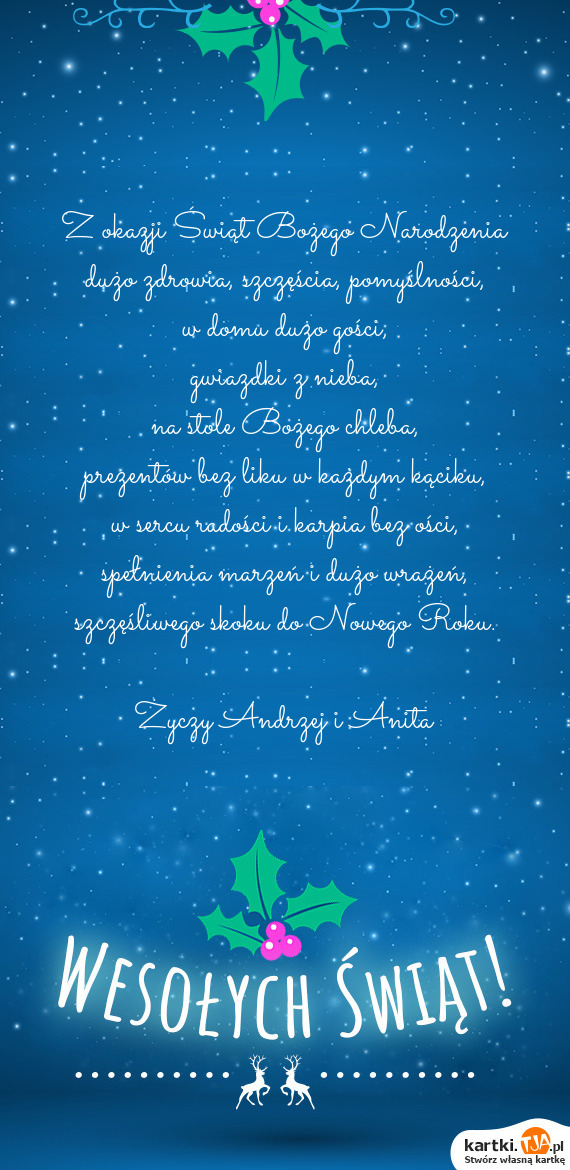 Z okazji Świąt Bożego Narodzenia
dużo zdrowia, szczęścia, pomyślności,
w domu dużo gości,
gwiazdki z nieba,
na stole Bożego chleba,
prezentów bez liku w każdym kąciku,
w sercu radości i karpia bez ości,
spełnienia marzeń i dużo wrażeń,
szczęśliwego skoku do Nowego Roku.
Życzy Andrzej i Anita
Wesołych Świąt!
kartki.TJA.pl
Stwórz własną kartkę